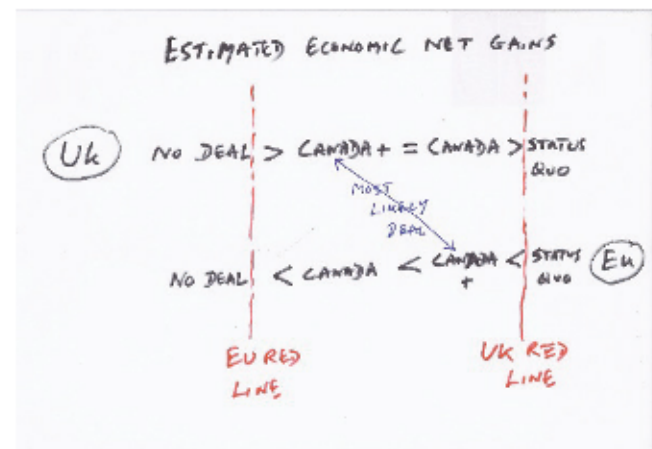 ESTIMATED ECONOMIC NET GAINS
UK NO DEAL > CANADA + = CANADA > STATUS
QUO
MOST
LIKELY
DEAL
NO DEAL < CANADA < CANADA < STATUS EU
+ QUO
EU RED UK RED
LINE LINE